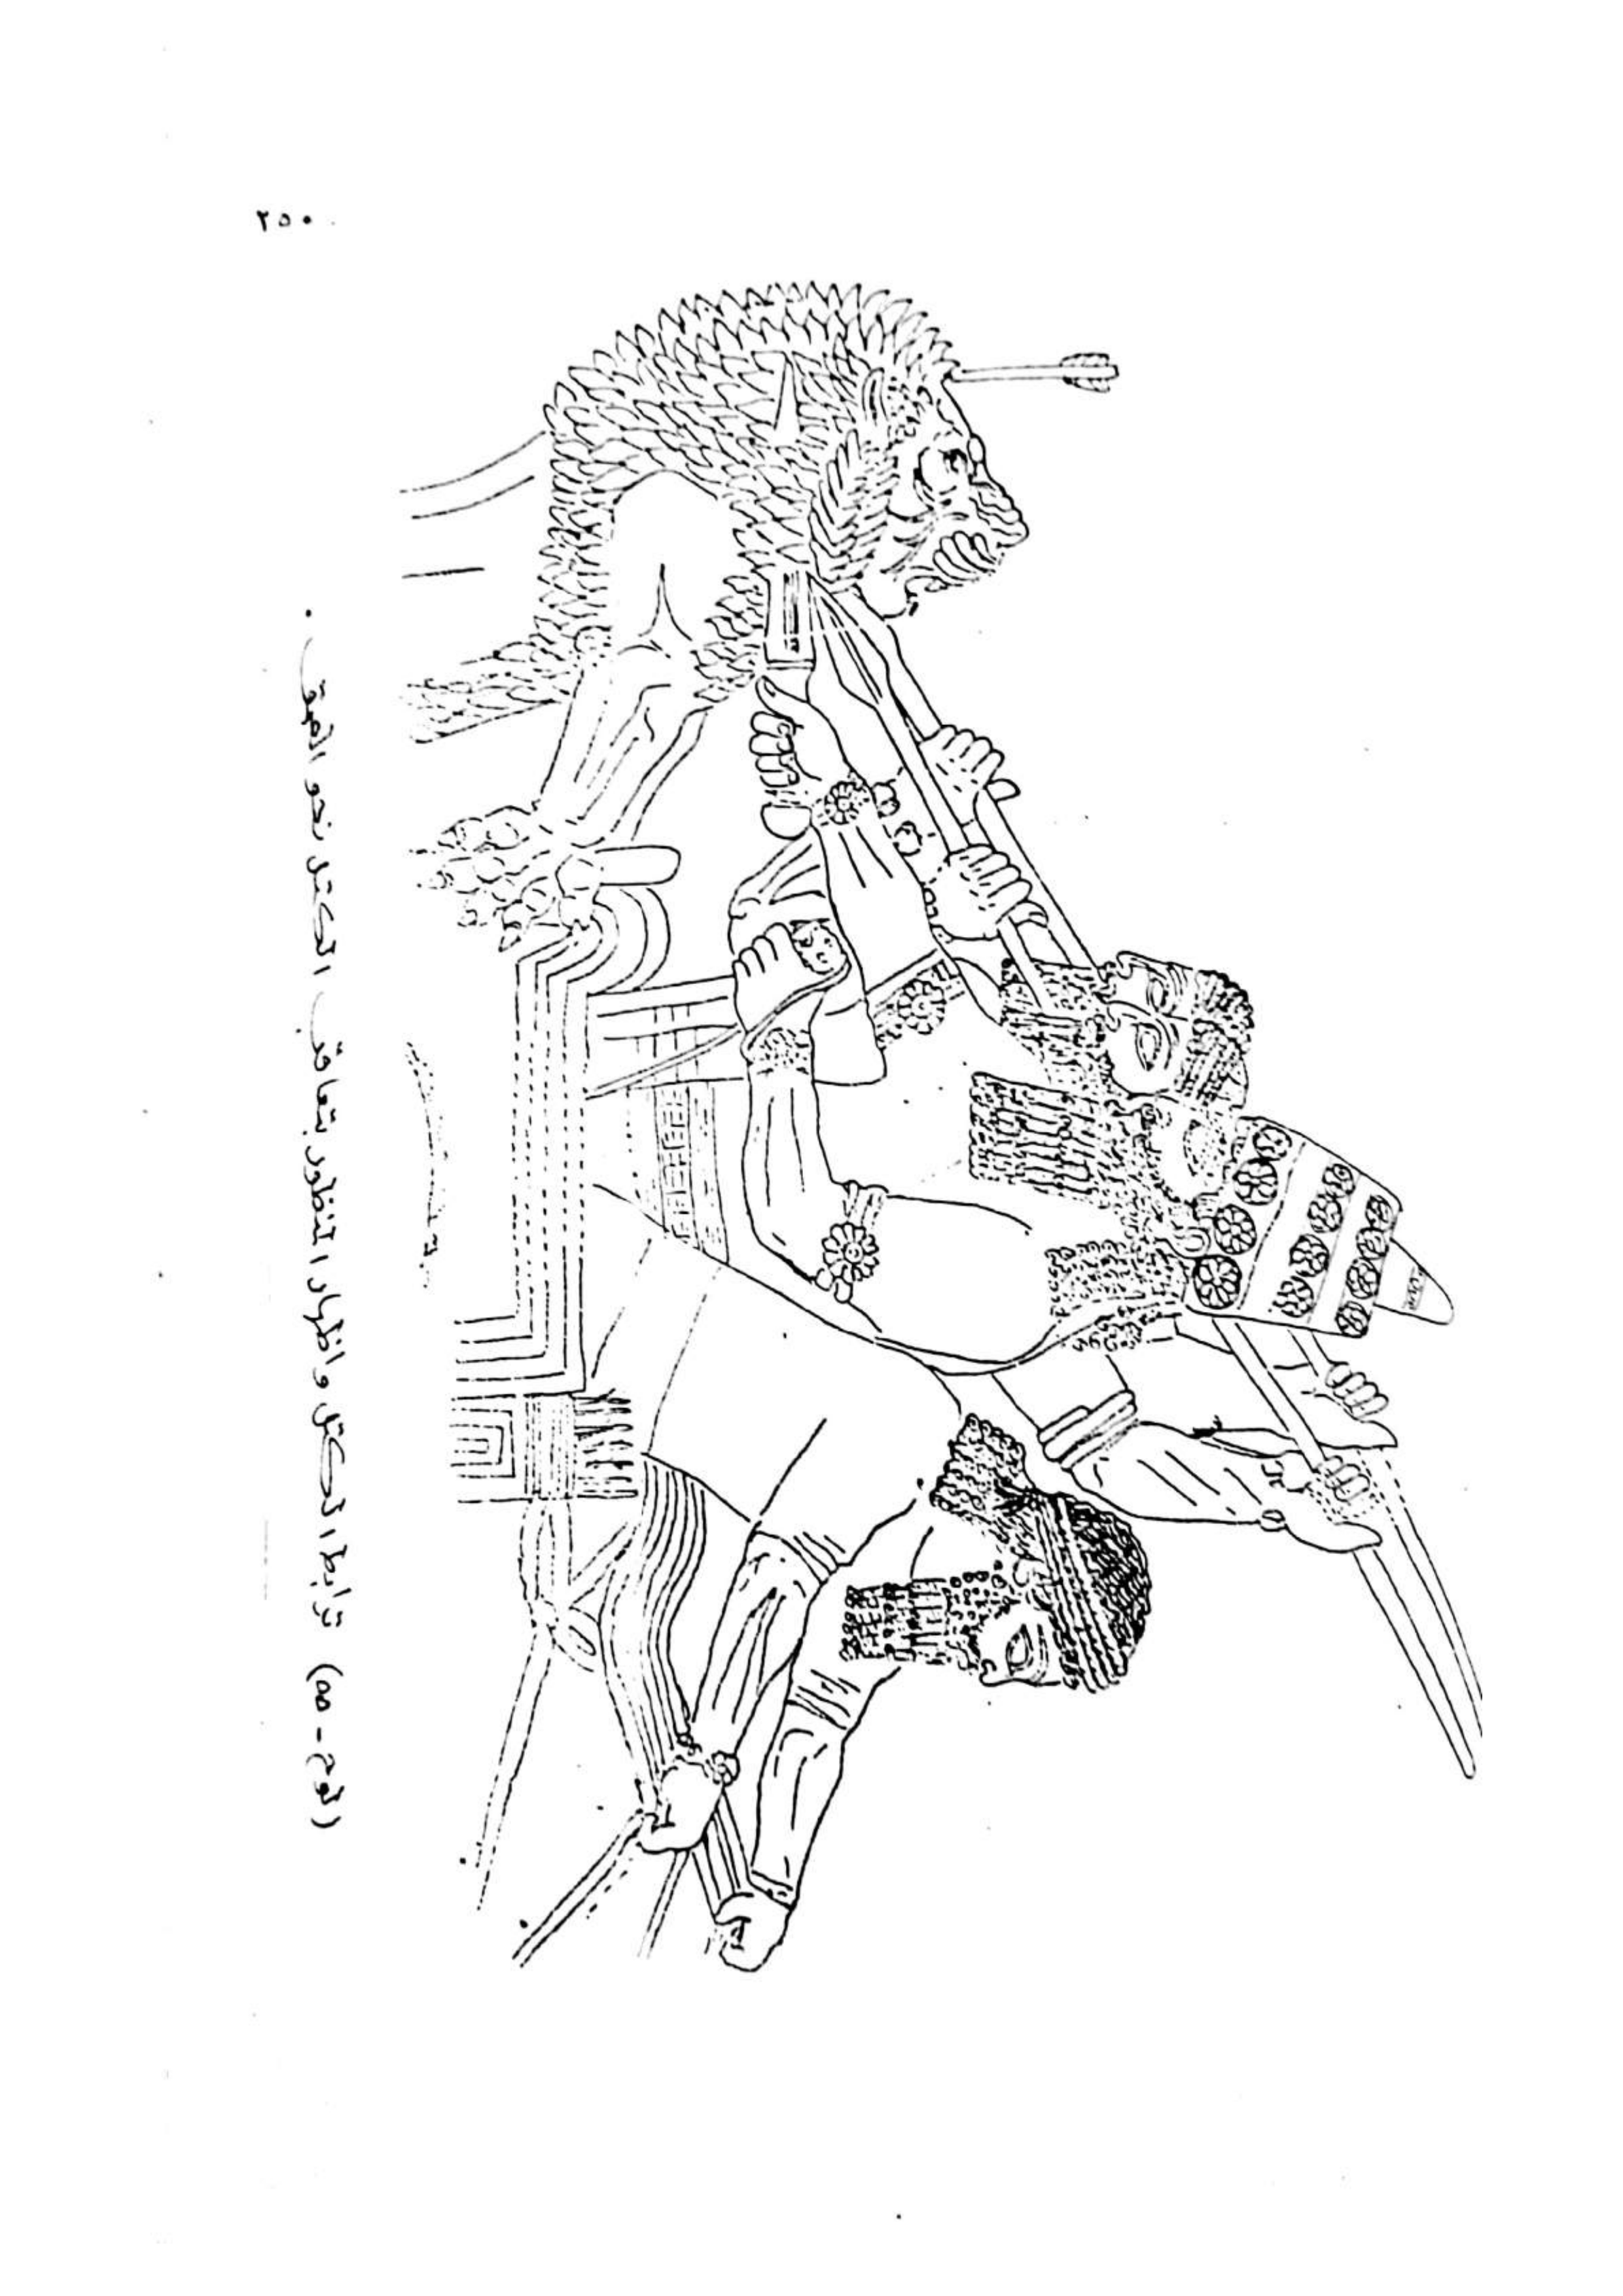 ٢٥٠
(لوح - ٥٥) ترابط الكتل وأفراد المنظور بتعاقب الكتل نحو العمق .